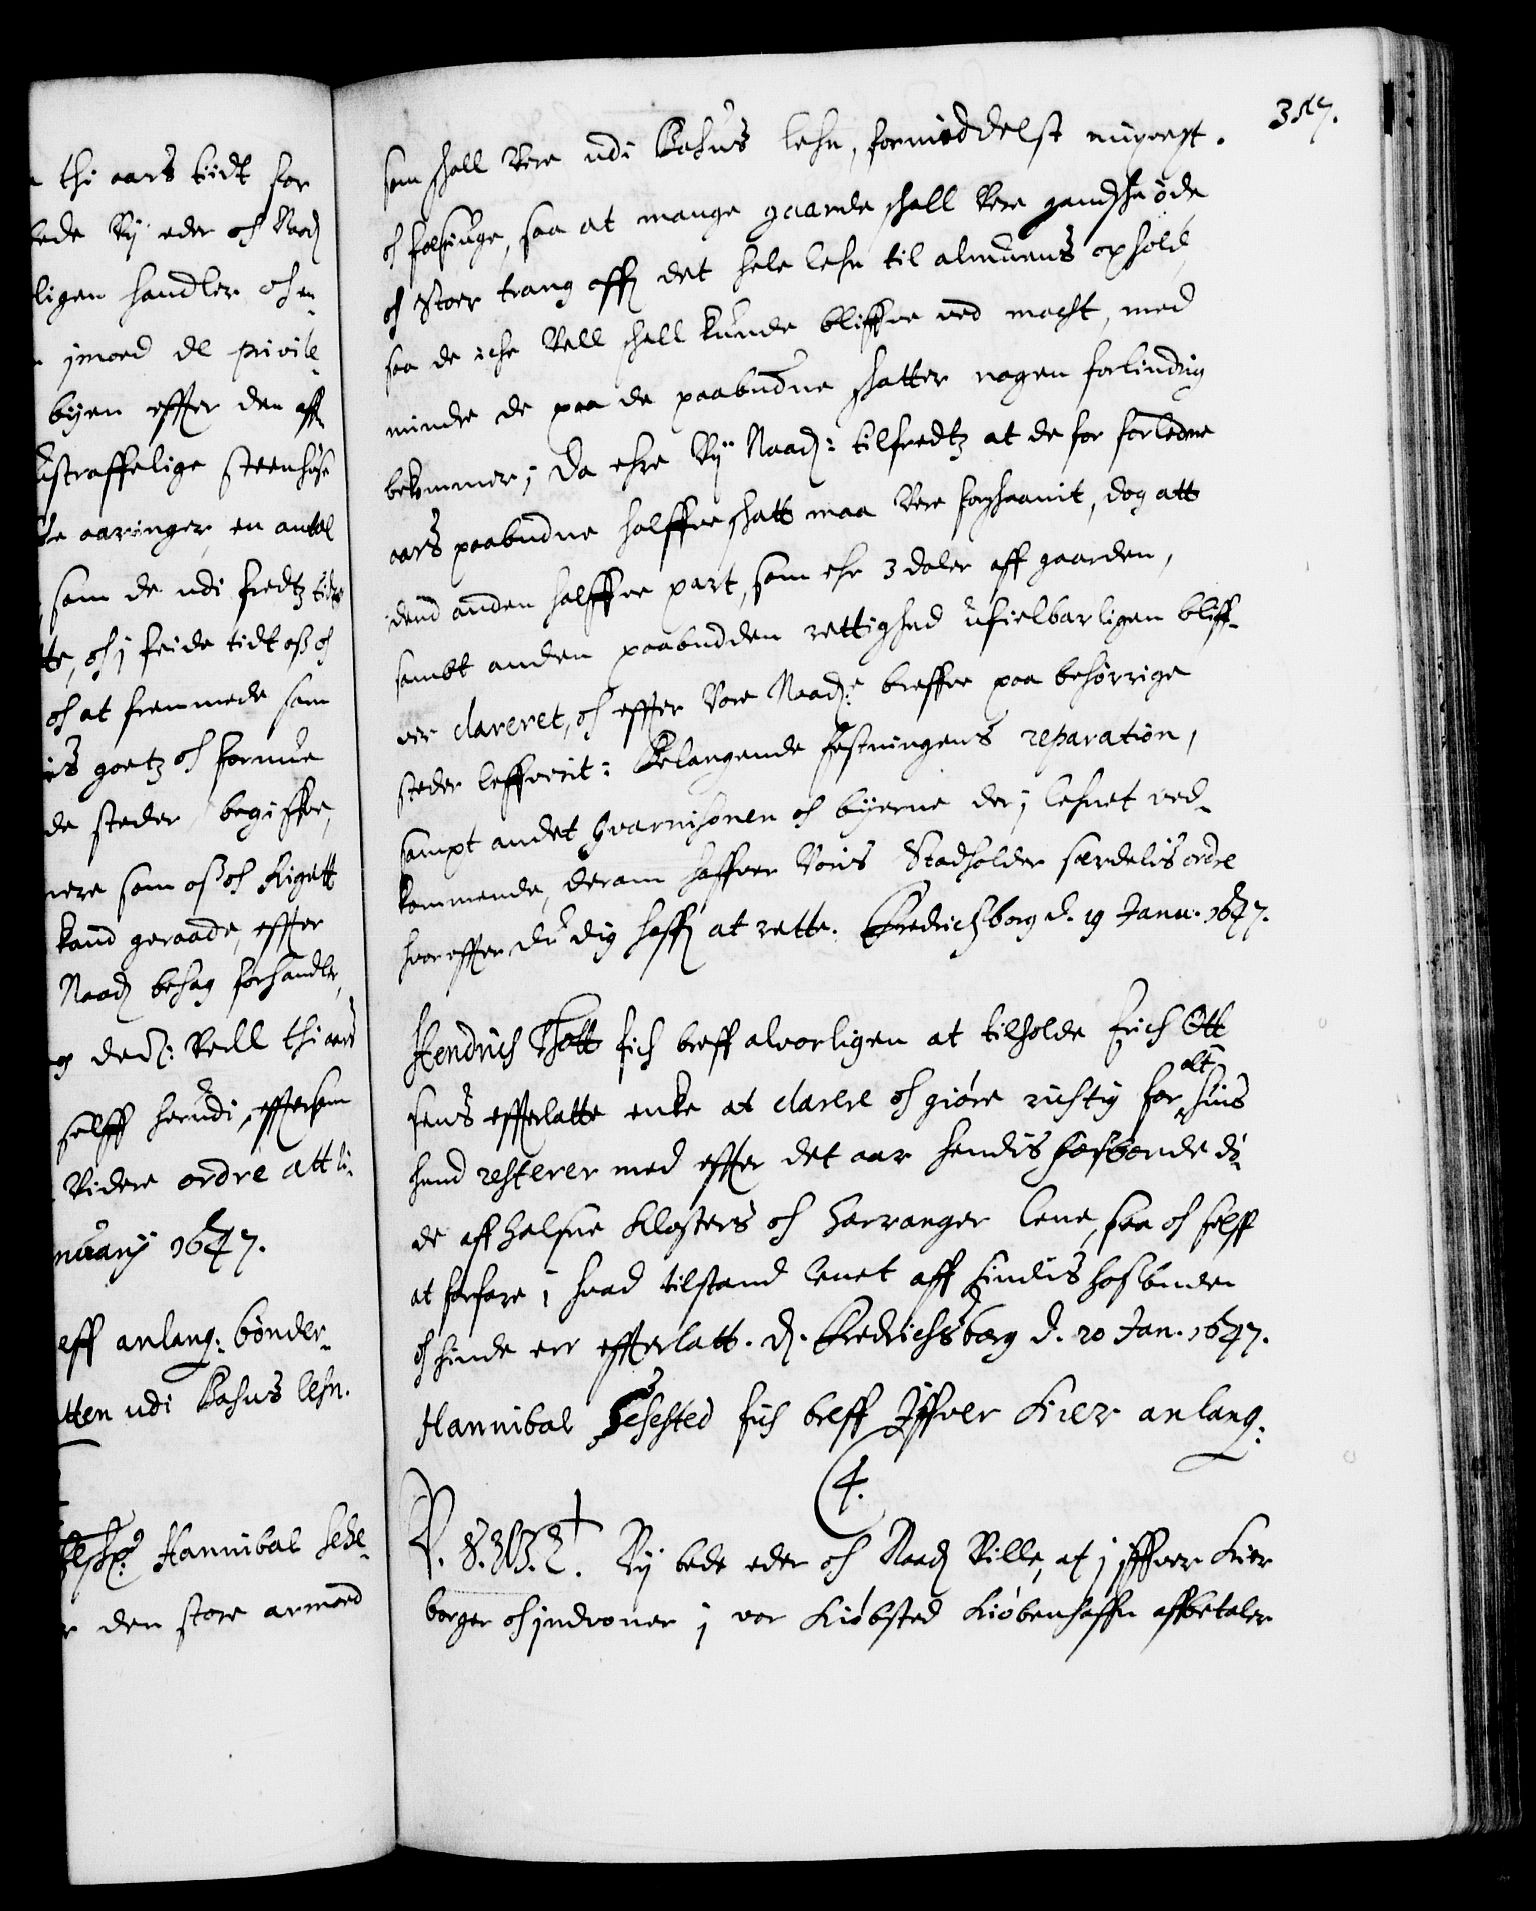 thi aars tidt for
bede Vj eder och Naad
ligen handler och en
imod de privile-
byen effter den aff-
ustraffelige steenhuse
aaringer, en antal
som de udi fredtz tider
te, och j feide tidt oss och
och at fremmede som
goetz och formue
de steder begiffve,
som oss och Rigett
kand geraade, effter
Naad behag forhandle,
Vell thi aars
selff herudi, effterson
Videre ordre att li-
nuarij 1647.
eff anlang: bønder-
tten udi Bahus lehn.
Hannibal Sehe-
den store armoed
317.
som schall Vere udi Bahus lehn, formiddelst
och saa at mange gaarde schall Vere gandsche øde
och stoer trang aff det hele lehn til almuens ophold,
saa de iche Vell schall kunde bliffve ved macht, med
mindre de paa de paabudne schatter nogen forlinding
bekommer; Da ehre Vj Naad: tilfredtz at de for forledne
aars paabudne halffve schatt maa Vere forschaanit, dog att
dend anden halffve part, som ehr 3 daler aff gaarden,
sambt anden paabudden rettighed ufielbarligen bliff-
ver clareret, och effter Vore Naad: breffve paa behørrige
steder leffverit: Belangende festningens reparation,
sampt andet Gvarnisonen och byerne der j lehnet ved-
kommende, derom haffver Voris Stadholder serdelis ordre
hvoreffter du dig haff at rette. Fredrichsborg d. 19 Janu. 1647.
Hendrich Thott fich breff alvorligen at tilholde Erich Ott
sens effterlatte enke at clarere och giøre richtig for alt huis
hand resterer med effter det aar hendis hosbonde dø-
de aff Halsne Klosters och Harranger lene, saa och selff
at forfare j hvad tilstand lenet aff hindis hosbunde
och hinde err effterlatt. Fredrichsborg d. 20 Jan. 1647.
Hannibal Sehested fich breff Iffver Krier anlang:
(4.
P. S. W. G. Vj bede eder och Naad Ville, at j Iffver Krier
borger och indvoner j vor Kiøbsted Kiøbenhaffn affbetaler